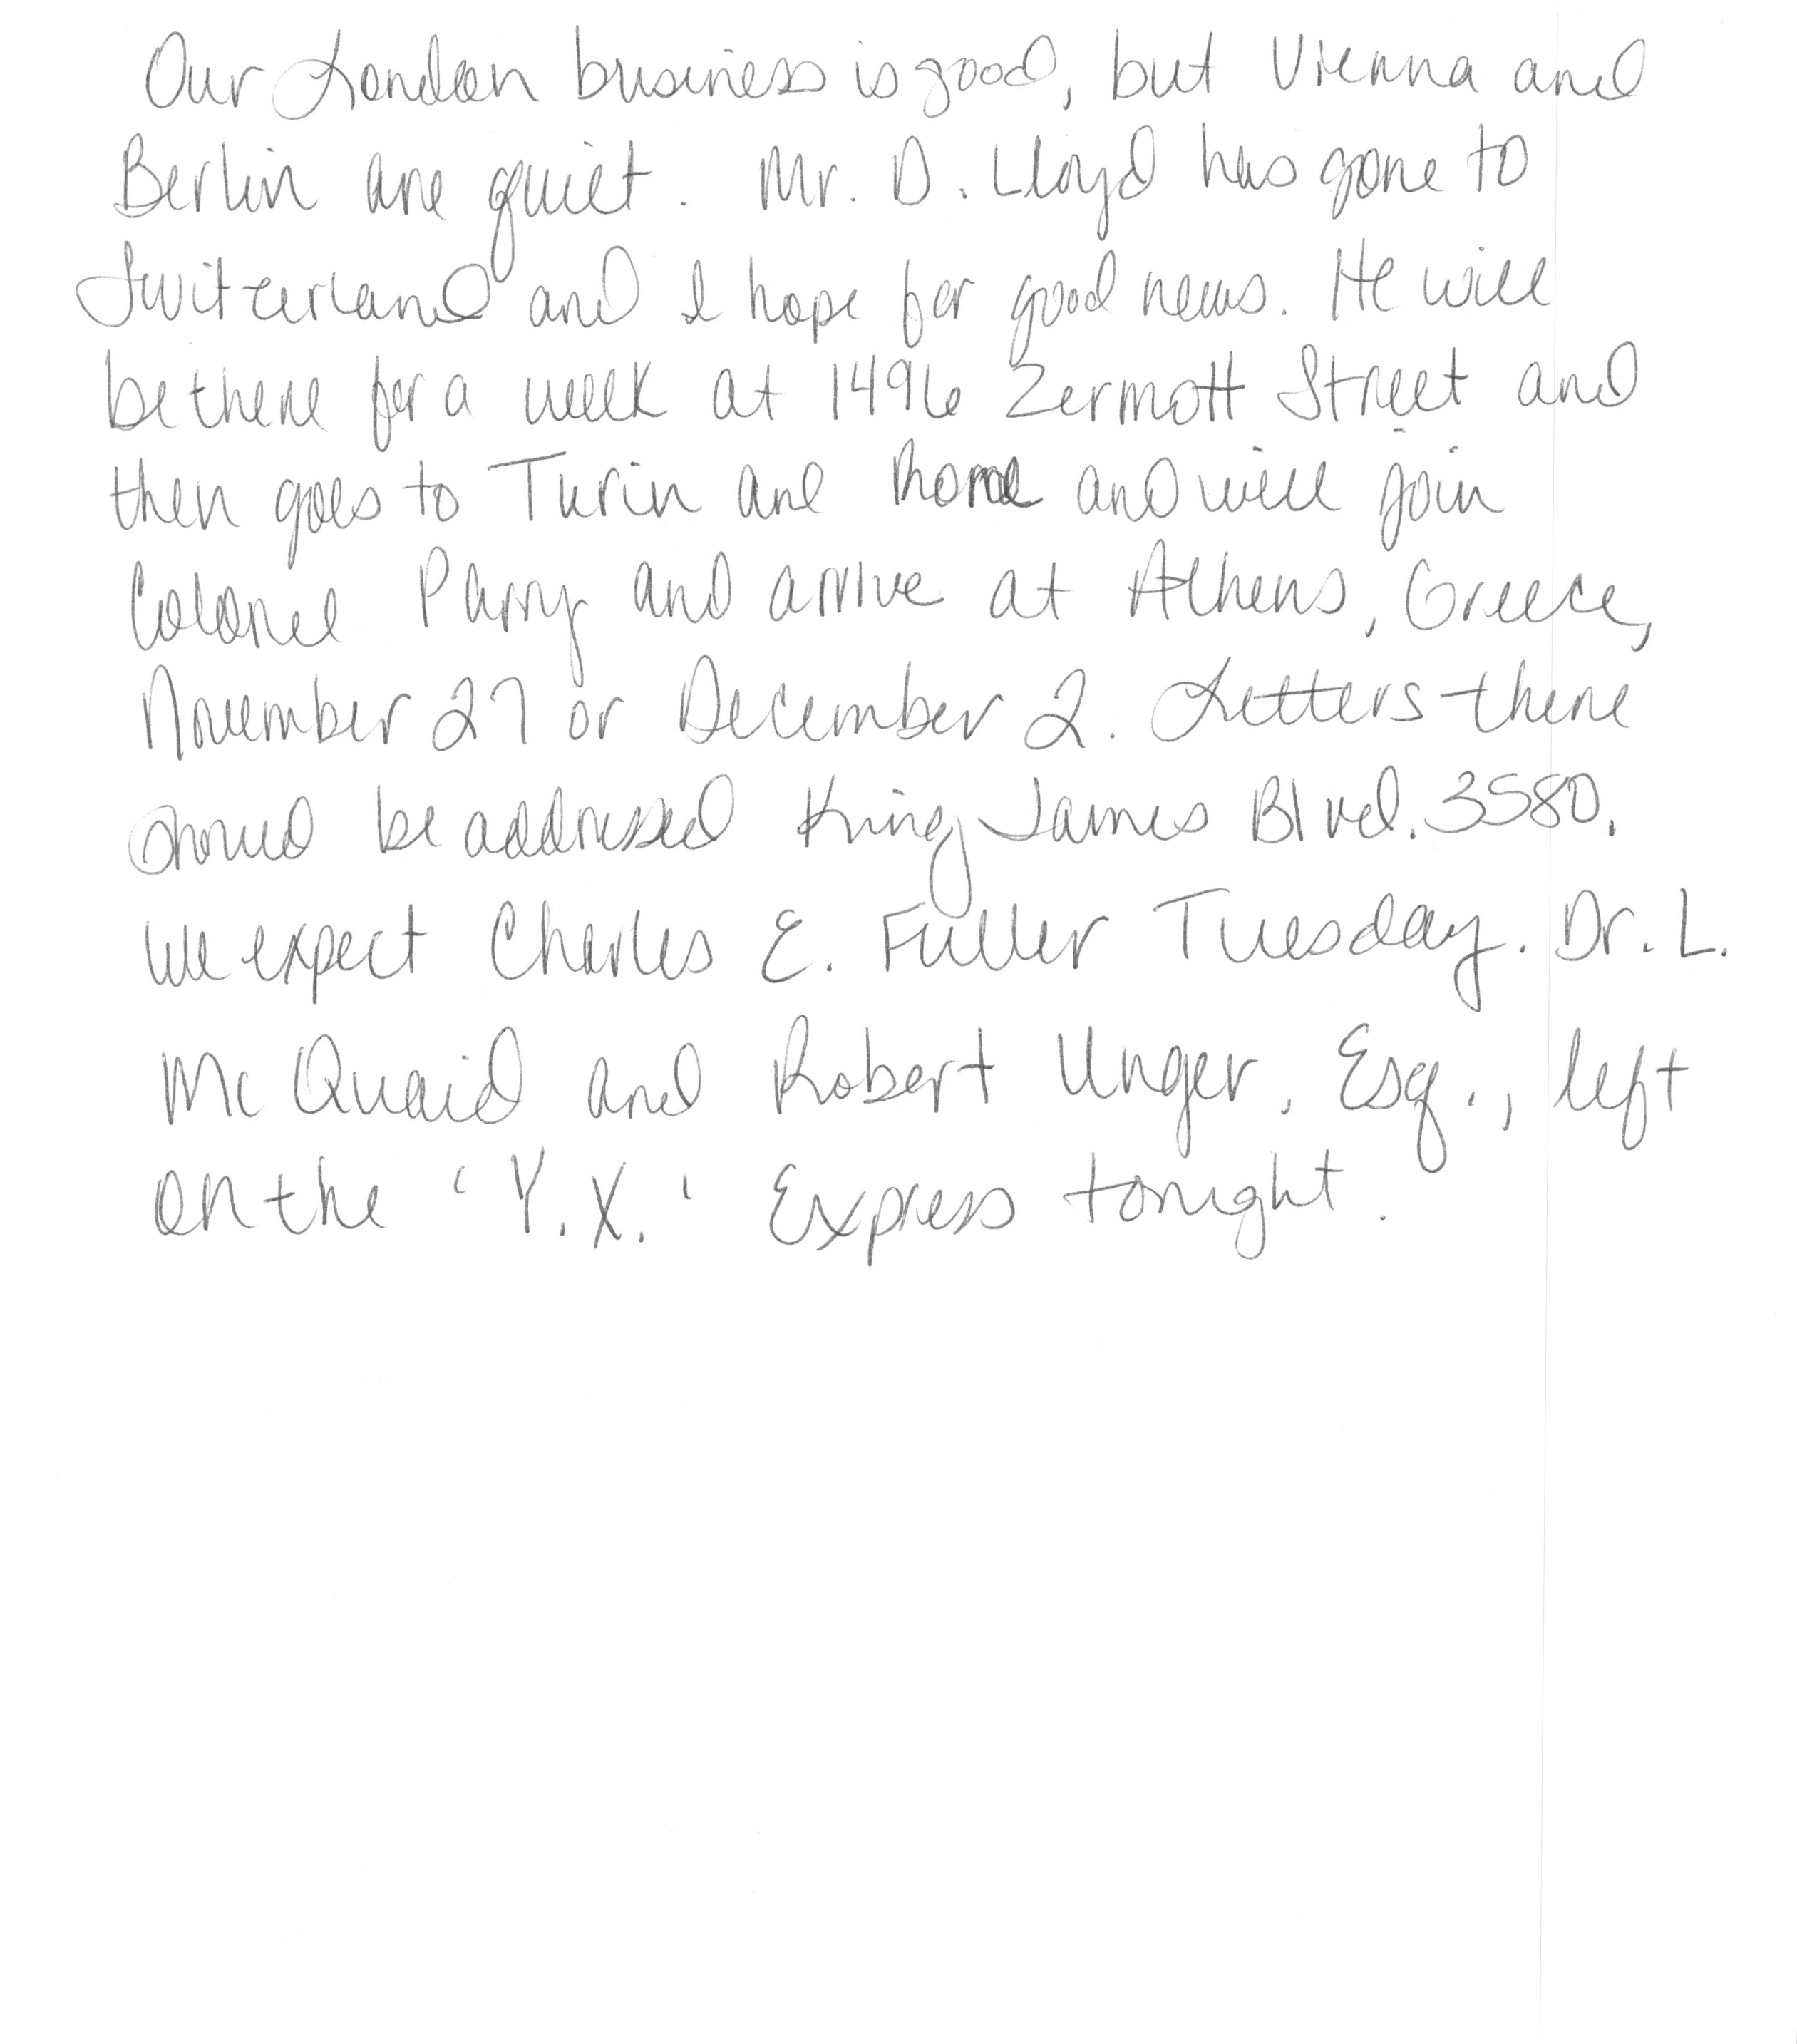 Our London business is good, but Vienna and
Berlin are quiet. Mr. D. Lloyd has gone to
Switzerland and I hope for good news. He will
be there for a week at 1496 Zermott Street and
then goes to Turin and Rome and will join
Colonel Parry and arrive at Athens, Greece,
November 27 or December 2. Letters there
should be addressed King James Blvd. 3580.
We expect Charles E. Fuller Tuesday. Dr. L.
McQuaid and Robert Unger, Esq., left
on the 'Y.X.' Express tonight.